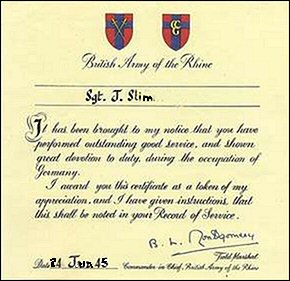 British Army of the Rhine
Sgt. J. Slim.
It has been brought to my notice that you have
performed outstanding good service, and shown
great devotion to duty, during the occupation of
Germany.
I award you this certificate as a token of my
appreciation, and I have given instructions that
this shall be noted in your Record of Service.
B. L. Montgomery
Field Marshal
Date 24 Jun 45 Commander-in-Chief, British Army of the Rhine